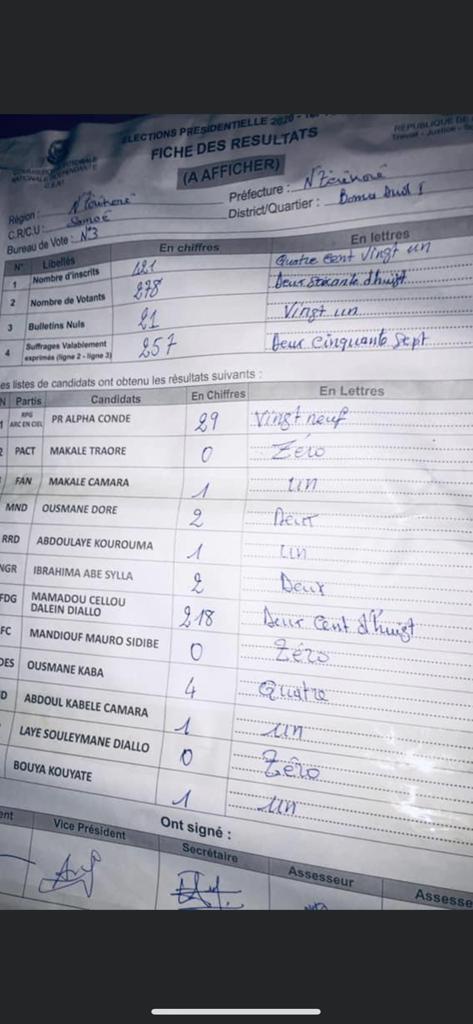 ELECTIONS PRESIDENTIELLE 2020
REPUBLIQUE DE
Travail - Justice -
FICHE DES RESULTATS
(A AFFICHER)
COMMISSION ELECTORALE
NATIONALE INDEPENDANTE
Région : N'Zérékoré
Préfecture : N'Zérékoré
C.R/C.U : Samoé
District/Quartier : Boma Sud 1
Bureau de Vote : N°3
N° Libellés En chiffres En lettres
1 Nombre d'inscrits 421 Quatre Cent Vingt un
2 Nombre de Votants 278 Deux soixante d'huigt
3 Bulletins Nuls 21 Vingt un
4 Suffrages Valablement exprimés (ligne 2 - ligne 3) 257 Deux Cinquante Sept
es listes de candidats ont obtenu les résultats suivants :
N Partis Candidats En Chiffres En Lettres
1 RPG ARC EN CIEL PR ALPHA CONDE 29 Vingt neuf
PACT MAKALE TRAORE 0 Zéro
FAN MAKALE CAMARA 1 un
MND OUSMANE DORE 2 Deux
RRD ABDOULAYE KOUROUMA 1 un
NGR IBRAHIMA ABE SYLLA 2 Deux
FDG MAMADOU CELLOU DALEIN DIALLO 218 Deux Cent d'huigt
FC MANDIOUF MAURO SIDIBE 0 Zéro
DES OUSMANE KABA 4 Quatre
D ABDOUL KABELE CAMARA 1 un
LAYE SOULEYMANE DIALLO 0 Zéro
BOUYA KOUYATE 1 un
Ont signé :
ent Vice Président Secrétaire Assesseur Assesse